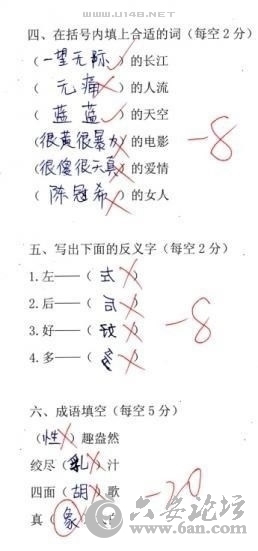 www.U148.NET
四、在括号内填上合适的词(每空2分)
(一望无际)的长江
(无痛)的人流
(蓝蓝)的天空
(很黄很暴力)的电影
(很傻很天真)的爱情
(陈冠希)的女人
-8
五、写出下面的反义字(每空2分)
1.左——( )
2.后——( )
3.好——( )
4.多——( )
-8
六、成语填空(每空5分)
(性)趣盎然
绞尽(乳)汁
四面(胡)歌
真(象)大
-20
六安论坛
www.6an.com